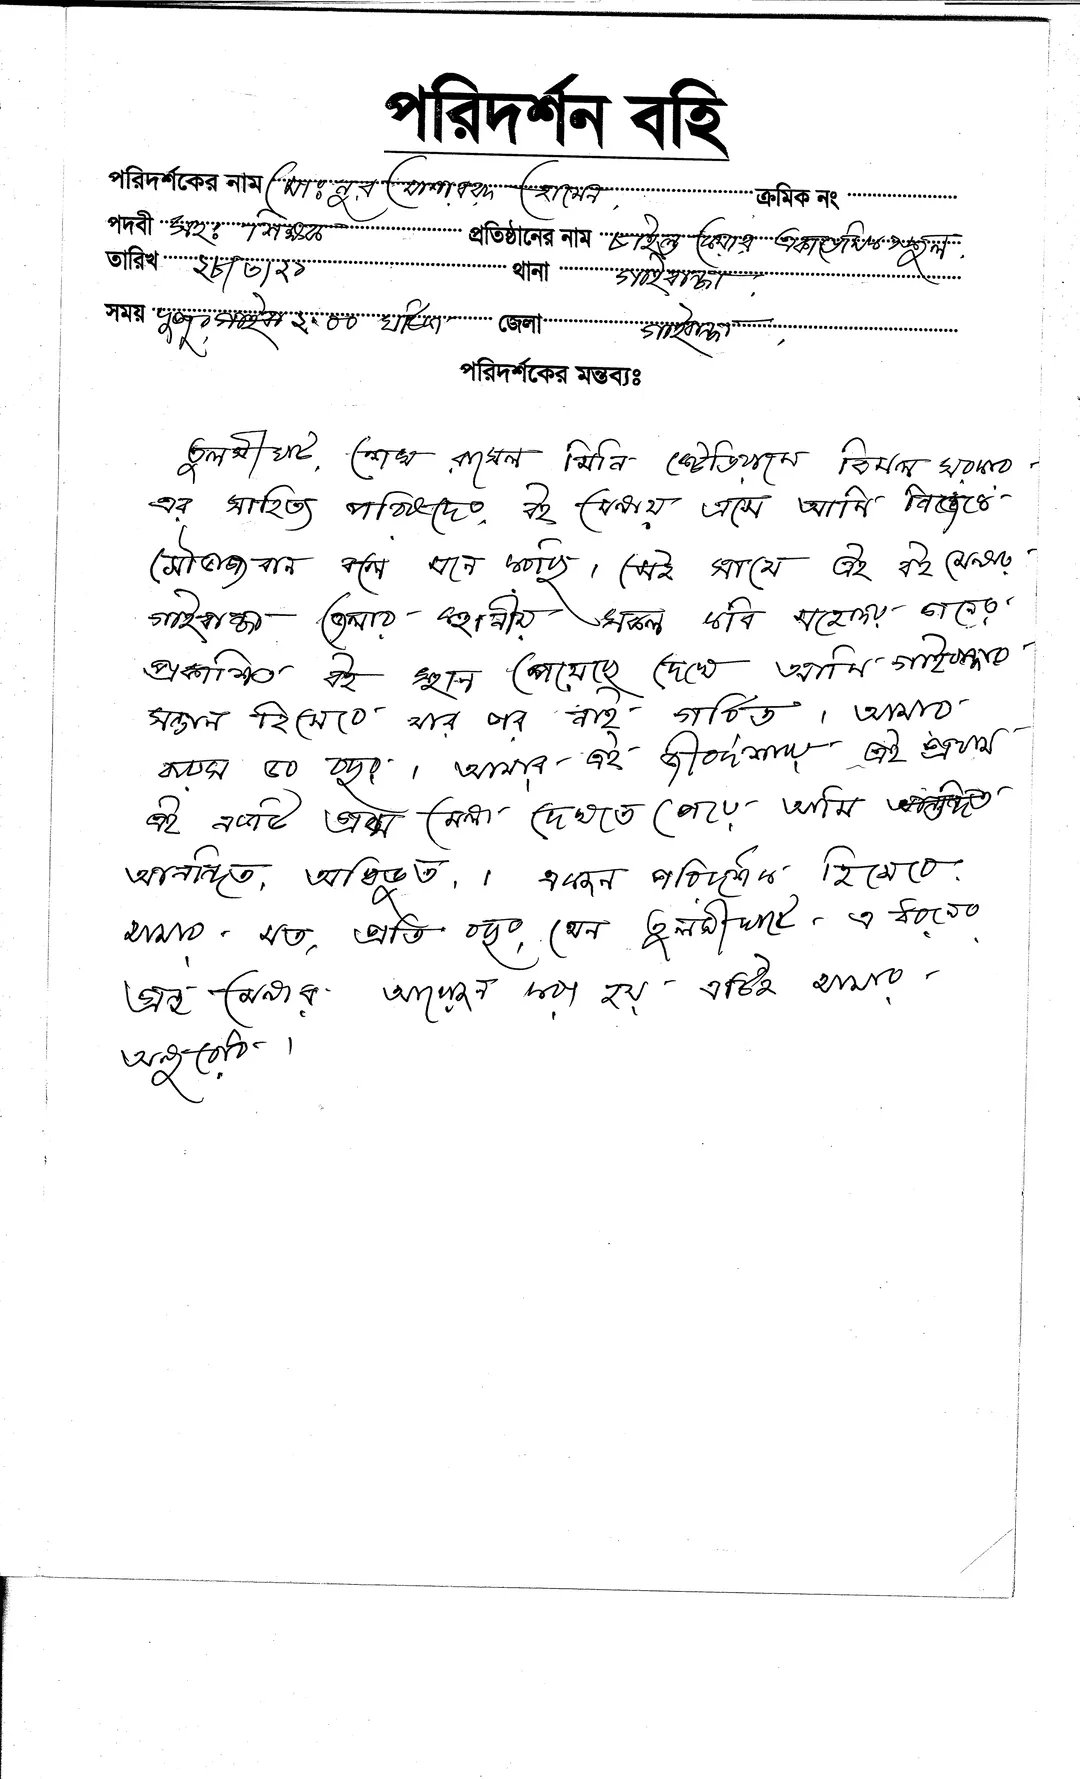 পরিদর্শন বহি
পরিদর্শকের নাম মোঃ নুর মোশাররফ হোসেন ক্রমিক নং
পদবী সহঃ শিক্ষক প্রতিষ্ঠানের নাম চাইল্ড কেয়ার একাডেমিক স্কুল
তারিখ ২৮/৩/২১ থানা গাইবান্ধা
সময় দুপুর ২.০০ ঘটিকা জেলা গাইবান্ধা
পরিদর্শকের মন্তব্যঃ
তুলসীঘাট, শেখ রাসেল মিনি স্টেডিয়ামে বিমল সরকার
এর সাহিত্য পরিষদের, বই মেলায় এসে আমি নিজেকে
সৌভাগ্যবান বলে মনে করছি। সেই সাথে এই বই মেলায়
গাইবান্ধা জেলার স্থানীয় সকল কবি মহোদয় গনের
প্রকাশিত বই স্থান পেয়েছে দেখে আমি গাইবান্ধার
সন্তান হিসেবে যার পর নাই গর্বিত। আমার
বয়স ৫০ বছর। আমার এই জীবদ্দশায় এই প্রথম
এই গ্রন্থ মেলা দেখতে পেয়ে আমি
আনন্দিত, অভিভূত,। একজন পরিদর্শক হিসেবে
আমার মত, প্রতি বছর, যেন তুলসীঘাটে এ ধরনের
গ্রন্থ মেলার আয়োজন করা হয় এটাই আমার
অনুরোধ।